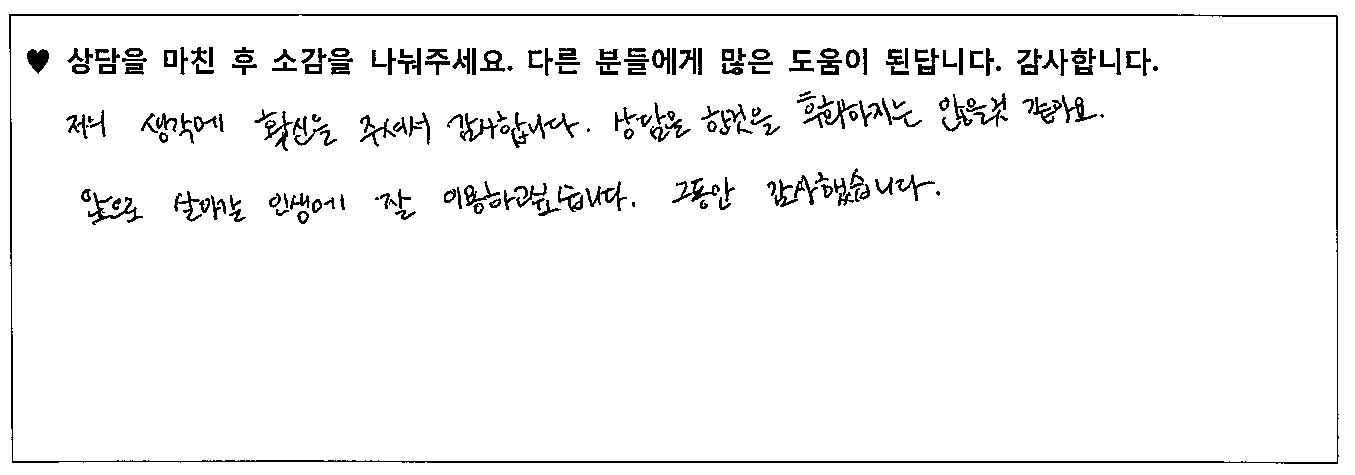 ♥ 상담을 마친 후 소감을 나눠주세요. 다른 분들에게 많은 도움이 된답니다. 감사합니다.
저의 생각에 확신을 주셔서 감사합니다. 상담을 한것을 후회하지는 않을것 같아요.
앞으로 살아가는 인생에 잘 이용하고싶습니다. 그동안 감사했습니다.